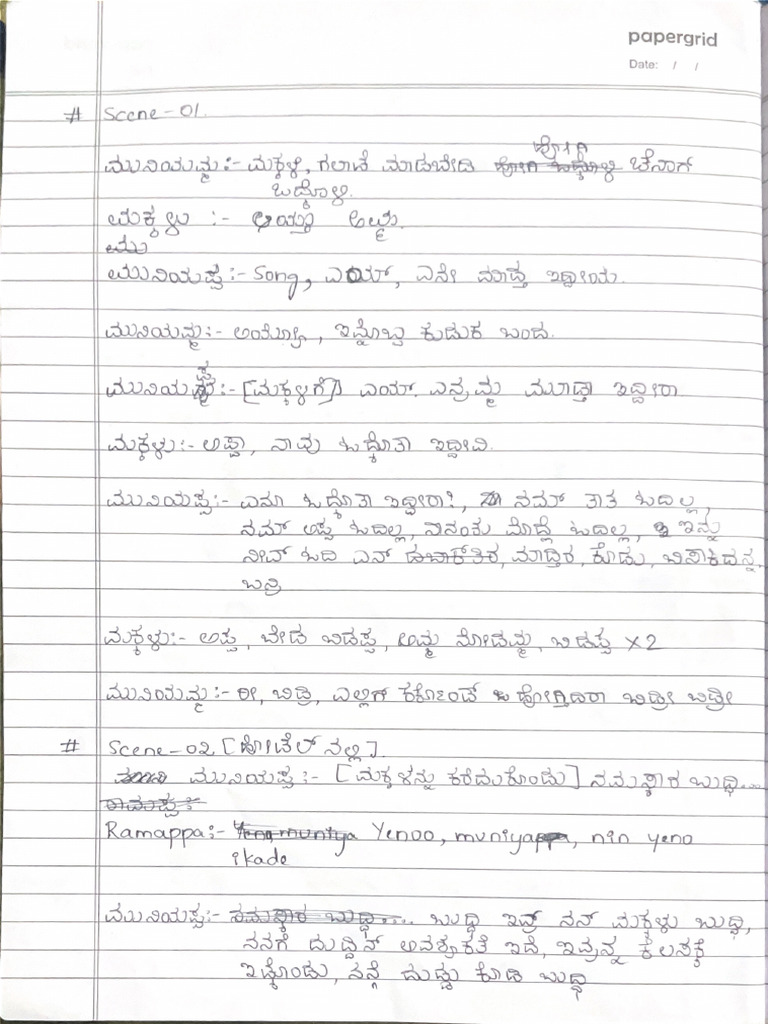 papergrid
Date: / /
# Scene-01.
ಹೋಗಿ
ಮುನಿಯಮ್ಮ:- ಮಕ್ಕಳೆ, ಗಲಾಟೆ ಮಾಡಬೇಡಿ ಚೆನಾಗ್
ಓದ್ಕೊಳ್ಳಿ.
ಮಕ್ಕಳು :- ಆಯ್ತು ಅಮ್ಮ.
ಮು
ಮುನಿಯಪ್ಪ:- Song, ಏಯ್, ಏನೇ ಮಾಡ್ತ ಇದ್ದೀಯ.
ಮುನಿಯಮ್ಮ:- ಅಯ್ಯೋ, ಇನ್ನೊಬ್ಬ ಕುಡುಕ ಬಂದ.
ಮುನಿಯಪ್ಪ:- [ಮಕ್ಕಳಿಗೆ] ಏಯ್. ಏನ್ರಮ್ಮ ಮಾಡ್ತಾ ಇದ್ದೀರಾ
ಮಕ್ಕಳು:- ಅಪ್ಪಾ, ನಾವು ಓದ್ಕೊತಾ ಇದ್ದೀವಿ.
ಮುನಿಯಪ್ಪ:- ಏನೂ ಓದ್ಕೊತಾ ಇದ್ದೀರಾ!, ನಮ್ ತಾತ ಓದಿಲ್ಲ,
ನಮ್ ಅಪ್ಪ ಓದಿಲ್ಲ, ನಿನಂತು ಮೊದ್ಲೆ ಓದಿಲ್ಲ, ಇನ್ನು
ನೀವ್ ಓದಿ ಏನ್ ಮಾಡ್ತಿರ, ಕೊಡು, ಬಿಸಾಕದನ್ನ.
ಬನ್ರಿ
ಮಕ್ಕಳು:- ಅಪ್ಪ, ಬೇಡ ಬಿಡಪ್ಪ, ಅಮ್ಮ ನೋಡಮ್ಮ, ಬಿಡಪ್ಪ X2
ಮುನಿಯಮ್ಮ:- ರೀ, ಬಿಡ್ರಿ, ಎಲ್ಲಿಗ್ ಕರ್ಕೊಂಡ್ ಹೋಗ್ತಿದಿರಾ ಬಿಡ್ರೀ ಬಿಡ್ರೀ
# Scene-02 [ಹೋಟೆಲ್ ನಲ್ಲಿ].
ಮುನಿಯಪ್ಪ:- [ಮಕ್ಕಳನ್ನು ಕರೆದುಕೊಂಡು] ನಮಸ್ಕಾರ ಬುದ್ಧಿ...
ರಾಮಪ್ಪ:-
Ramappa:- Yenoo, muniyappa, nin yeno
ikade
ಮುನಿಯಪ್ಪ:- ನಮಸ್ಕಾರ ಬುದ್ಧಿ.... ಬುದ್ಧಿ ಇವ್ರ್ ನನ್ ಮಕ್ಕಳು ಬುದ್ಧಿ,
ನನಗೆ ದುಡ್ಡಿನ್ ಅವಶ್ಯಕತೆ ಇದೆ, ಇವ್ರನ್ನ ಕೆಲಸಕ್ಕೆ
ಇಟ್ಕೊಂಡು, ನನ್ಗೆ ದುಡ್ಡು ಕೊಡಿ ಬುದ್ಧಿ